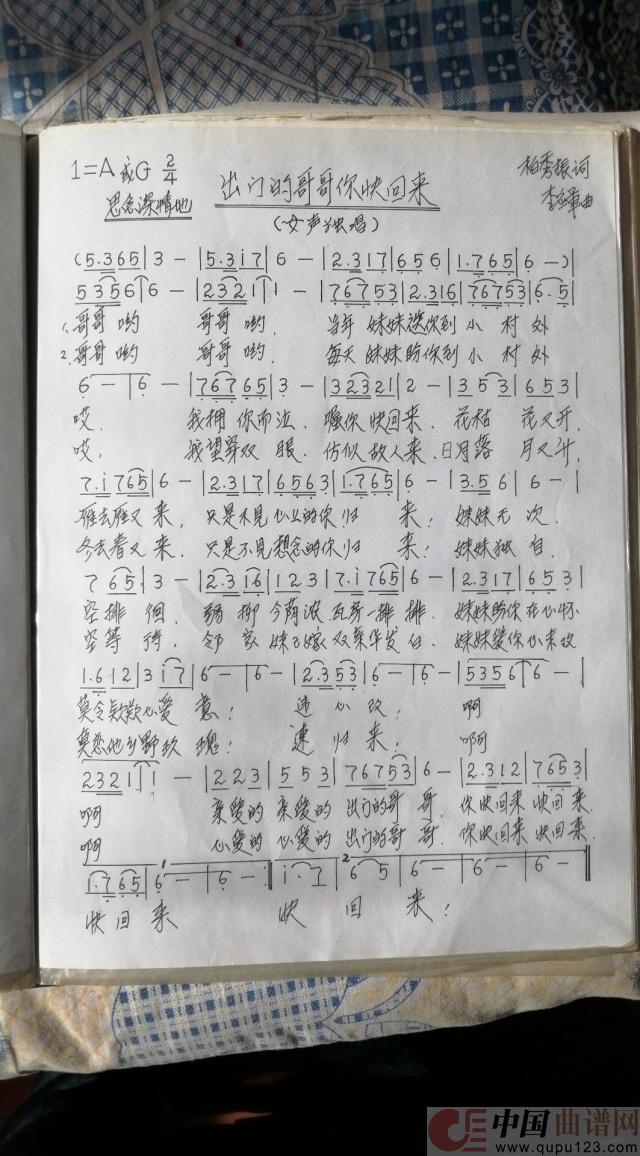 1=A或G 2/4 出门的哥哥你快回来 柏秀振词
思念深情地 (女声独唱) 李 曲
(5.365|3 - |5.3i7|6 - |2.317|656|1.765|6 -)|
53566|6 - |23211|1 - |76753|2.316|76753|6.5|
1.哥哥哟 哥哥哟. 当年 妹妹送你到小村外
2.哥哥哟 哥哥哟. 每天 妹妹盼你到小村外
6 - |6 - |76765|3 - |32321|2 - |353|653|
哎. 我拥你而泣. 嘱你快回来. 花枯 花又开.
哎. 我望穿双眼. 仿似故人来. 日月落 月又升.
7.i765|6 - |2.317|6563|1.765|6 - |3.56|6 - |
雁去雁又来. 只是不见心上的你归来! 妹妹无次
冬去春又来. 只是不见想念的你归来! 妹妹独自
765|3 - |2.316|123|7.i765|6 - |2.317|653|
空排徊. 弱柳今荫浓 瓦房一排排. 妹妹盼你在心怀
空等待. 邻家妹已嫁 双亲华发白. 妹妹爱你心未改
1.612|3i7|6 - |6 - |2.353|6 - |6 - |53566|6 - |
莫令欵欵心爱意! 违心改! 啊
莫恋他乡野玫瑰! 速归来! 啊
2321i|i - |223|553|76753|6 - |2.312|7653|
啊 亲爱的 亲爱的 出门的哥哥. 你快回来 快回来.
啊 心爱的 心爱的 出门的哥哥. 你快回来 快回来.
1.765|6 - |6 - :|i.7|65|6 - |6 - |6 - ||
快回来 快回来!
中国曲谱网
www.qupu123.com